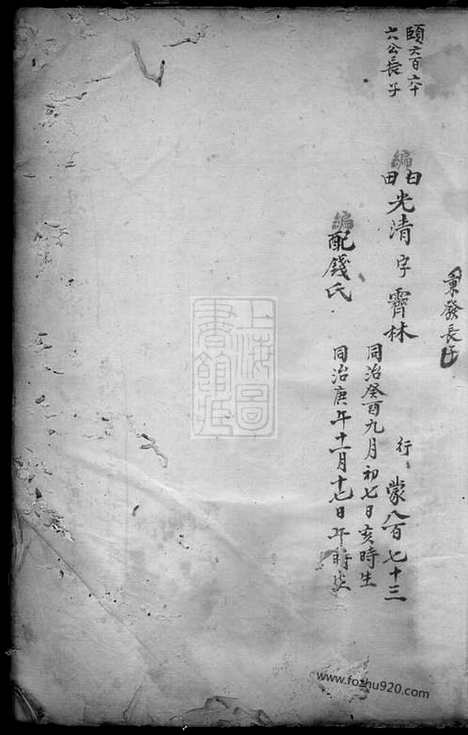 頤六百六十
六公長子
東發長子
編
白
田
光清字霽林
行蒙八百七十三
同治癸酉九月初七日亥時生
編
配錢氏
同治庚午十一月十七日午時生
上海圖書館藏
www.fozhu920.com